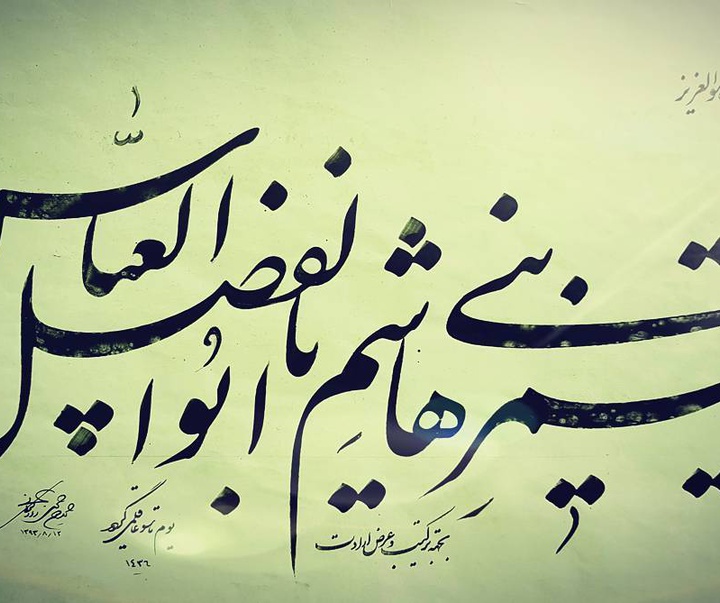 هوالعزیز
قمر بنی هاشم یا ابوالفضل العباس
و عرض ارادت
یوم تاسوعا قلمی گردید
۱۴۳۶
۱۳۹۳/۸/۱۲